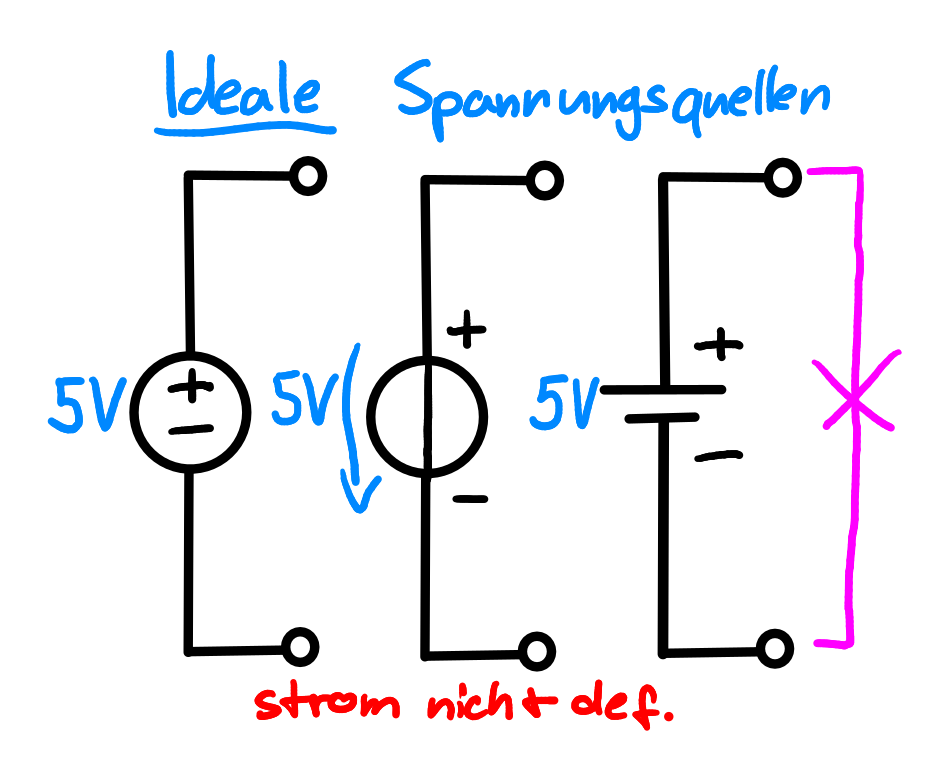 Ideale Spannungsquellen
+
+
5V + 5V 5V
−
− −
strom nicht def.